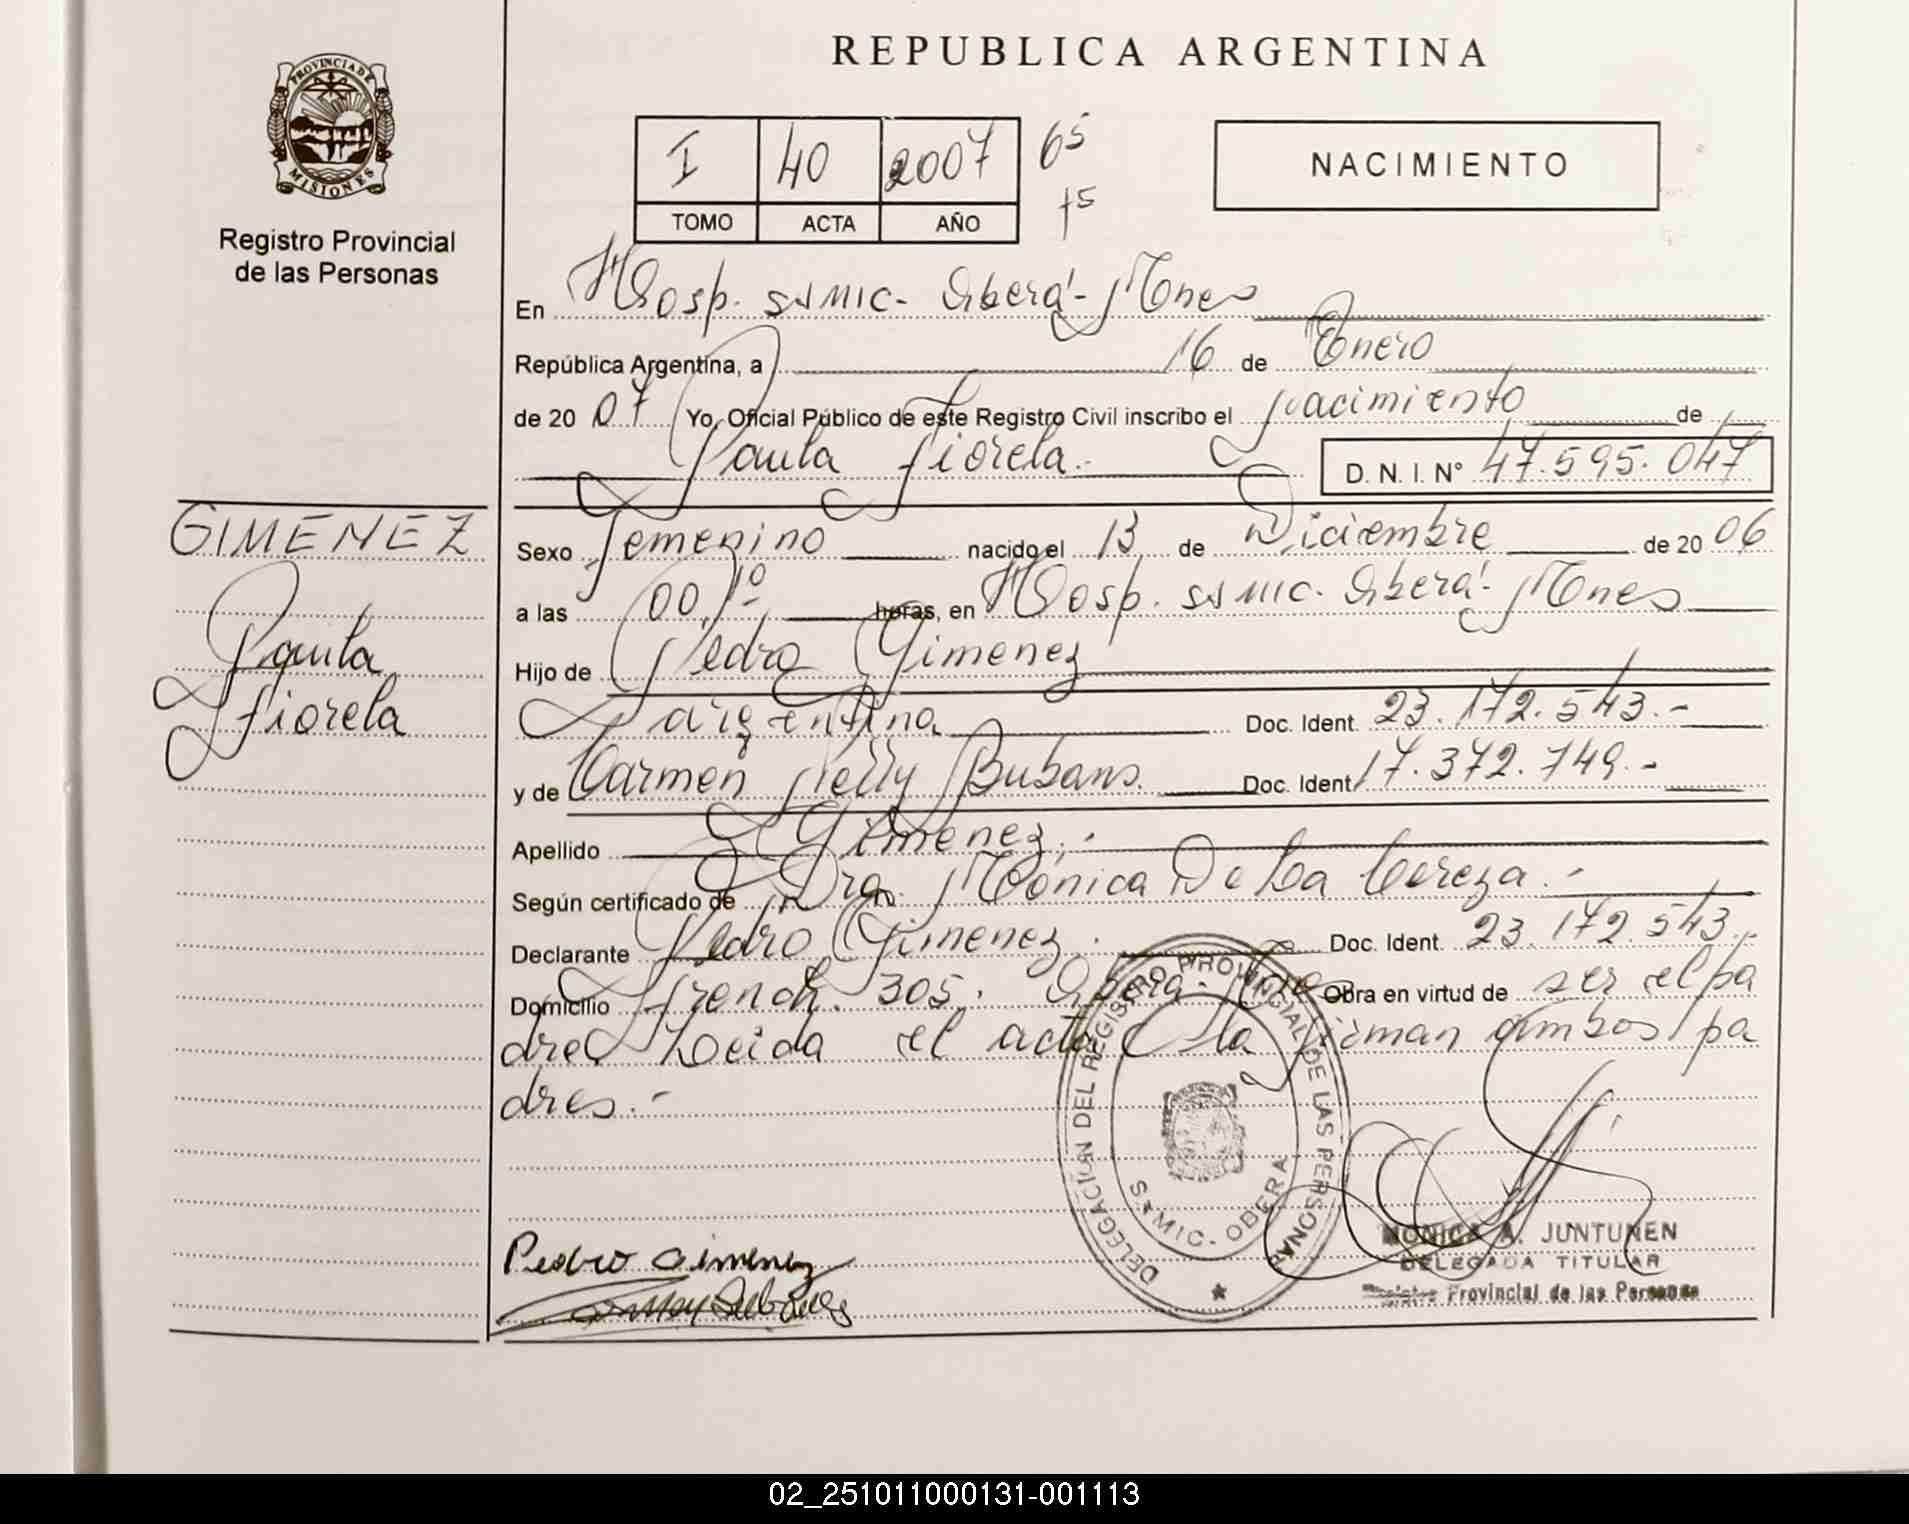 REPUBLICA ARGENTINA
PROVINCIA DE MISIONES
Registro Provincial
de las Personas
I 40 2007 65
TOMO ACTA AÑO 75
NACIMIENTO
En Hosp. SAMIC- Oberá- Mnes
República Argentina, a 16 de Enero
de 20 07 Yo, Oficial Público de este Registro Civil inscribo el nacimiento de
Paula Fiorela.- D. N. I. N° 47.595.047
GIMENEZ
Paula
Fiorela
Sexo Femenino nacido el 13 de Diciembre de 20 06
a las 00,10 horas, en Hosp. SAMIC. Oberá- Mnes
Hijo de Pedro Gimenez
Argentina Doc. Ident. 23.172.543.-
y de Carmen Nelly Doc. Ident. 17.372.749.-
Apellido Gimenez.-
Según certificado de Dra. Mónica De La
Declarante Pedro Gimenez. Doc. Ident. 23.172.543.-
Domicilio French. 305. Oberá- Mnes Obra en virtud de ser el pa
dre Leida el acta la firman ambos pa
dres.-
DELEGACION DEL REGISTRO PROVINCIAL DE LAS PERSONAS
SAMIC. OBERA
Pedro Gimenez
MONICA A. JUNTUNEN
DELEGADA TITULAR
Registro Provincial de las Personas
02_251011000131-001113